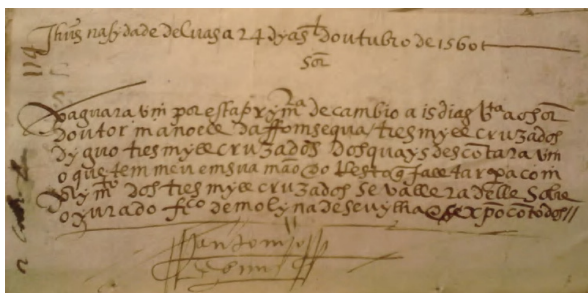 Jhus na sydade deluas a 24 dyas doutubro de 1560
Sor
pagara vm por esta prymra de cambio a 15 dias vta ao sor
doutor manoell dafomsequa tres myll cruzados
dyguo tres myll cruzados dos quays descõtara vm
o que tem meu em sua mão
prymro dos tres myll cruzados se vallera delle sobre
o jurado frco de molyna de sevylha xpo cõ todos
antonio
gomes